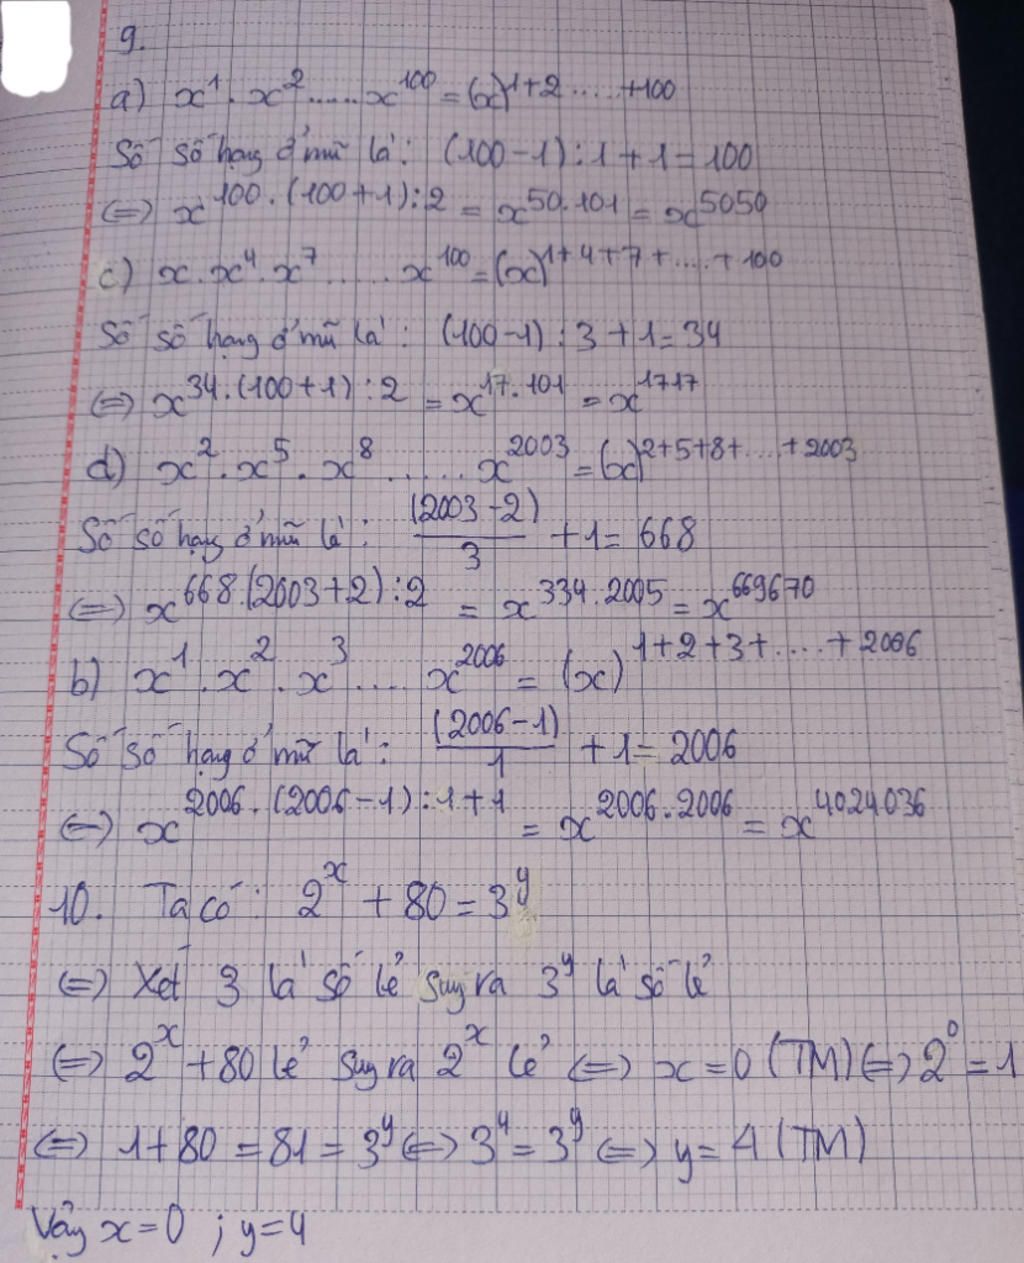 9.
a) x¹ . x² ...... x¹⁰⁰ = (x)^1+2.....+100
Số số hạng ở mũ là: (100-1):1+1=100
<=> x^100.(100+1):2 = x^50.101 = x^5050
c) x . x⁴ . x⁷ ...... x¹⁰⁰ = (x)^1+4+7+.....+100
Số số hạng ở mũ là: (100-1):3+1=34
<=> x^34.(100+1):2 = x^17.101 = x^1717
d) x² . x⁵ . x⁸ ...... x²⁰⁰³ = (x)^2+5+8+....+2003
Số số hạng ở mũ là: (2003-2)/3 +1= 668
<=> x^668.(2003+2):2 = x^334.2005 = x^669670
b) x¹ . x² . x³ .... x²⁰⁰⁶ = (x)^1+2+3+.....+2006
Số số hạng ở mũ là: (2006-1)/1 +1= 2006
<=> x^2006.(2006-1):1+1 = x^2006.2006 = x^4024036
10. Ta có: 2^x + 80 = 3^y
<=> Xét 3 là số lẻ suy ra 3^y là số lẻ
<=> 2^x + 80 lẻ suy ra 2^x lẻ <=> x = 0 (TM) <=> 2⁰ = 1
<=> 1+80 = 81 = 3^y <=> 3⁴ = 3^y <=> y = 4 (TM)
Vậy x=0 ; y=4